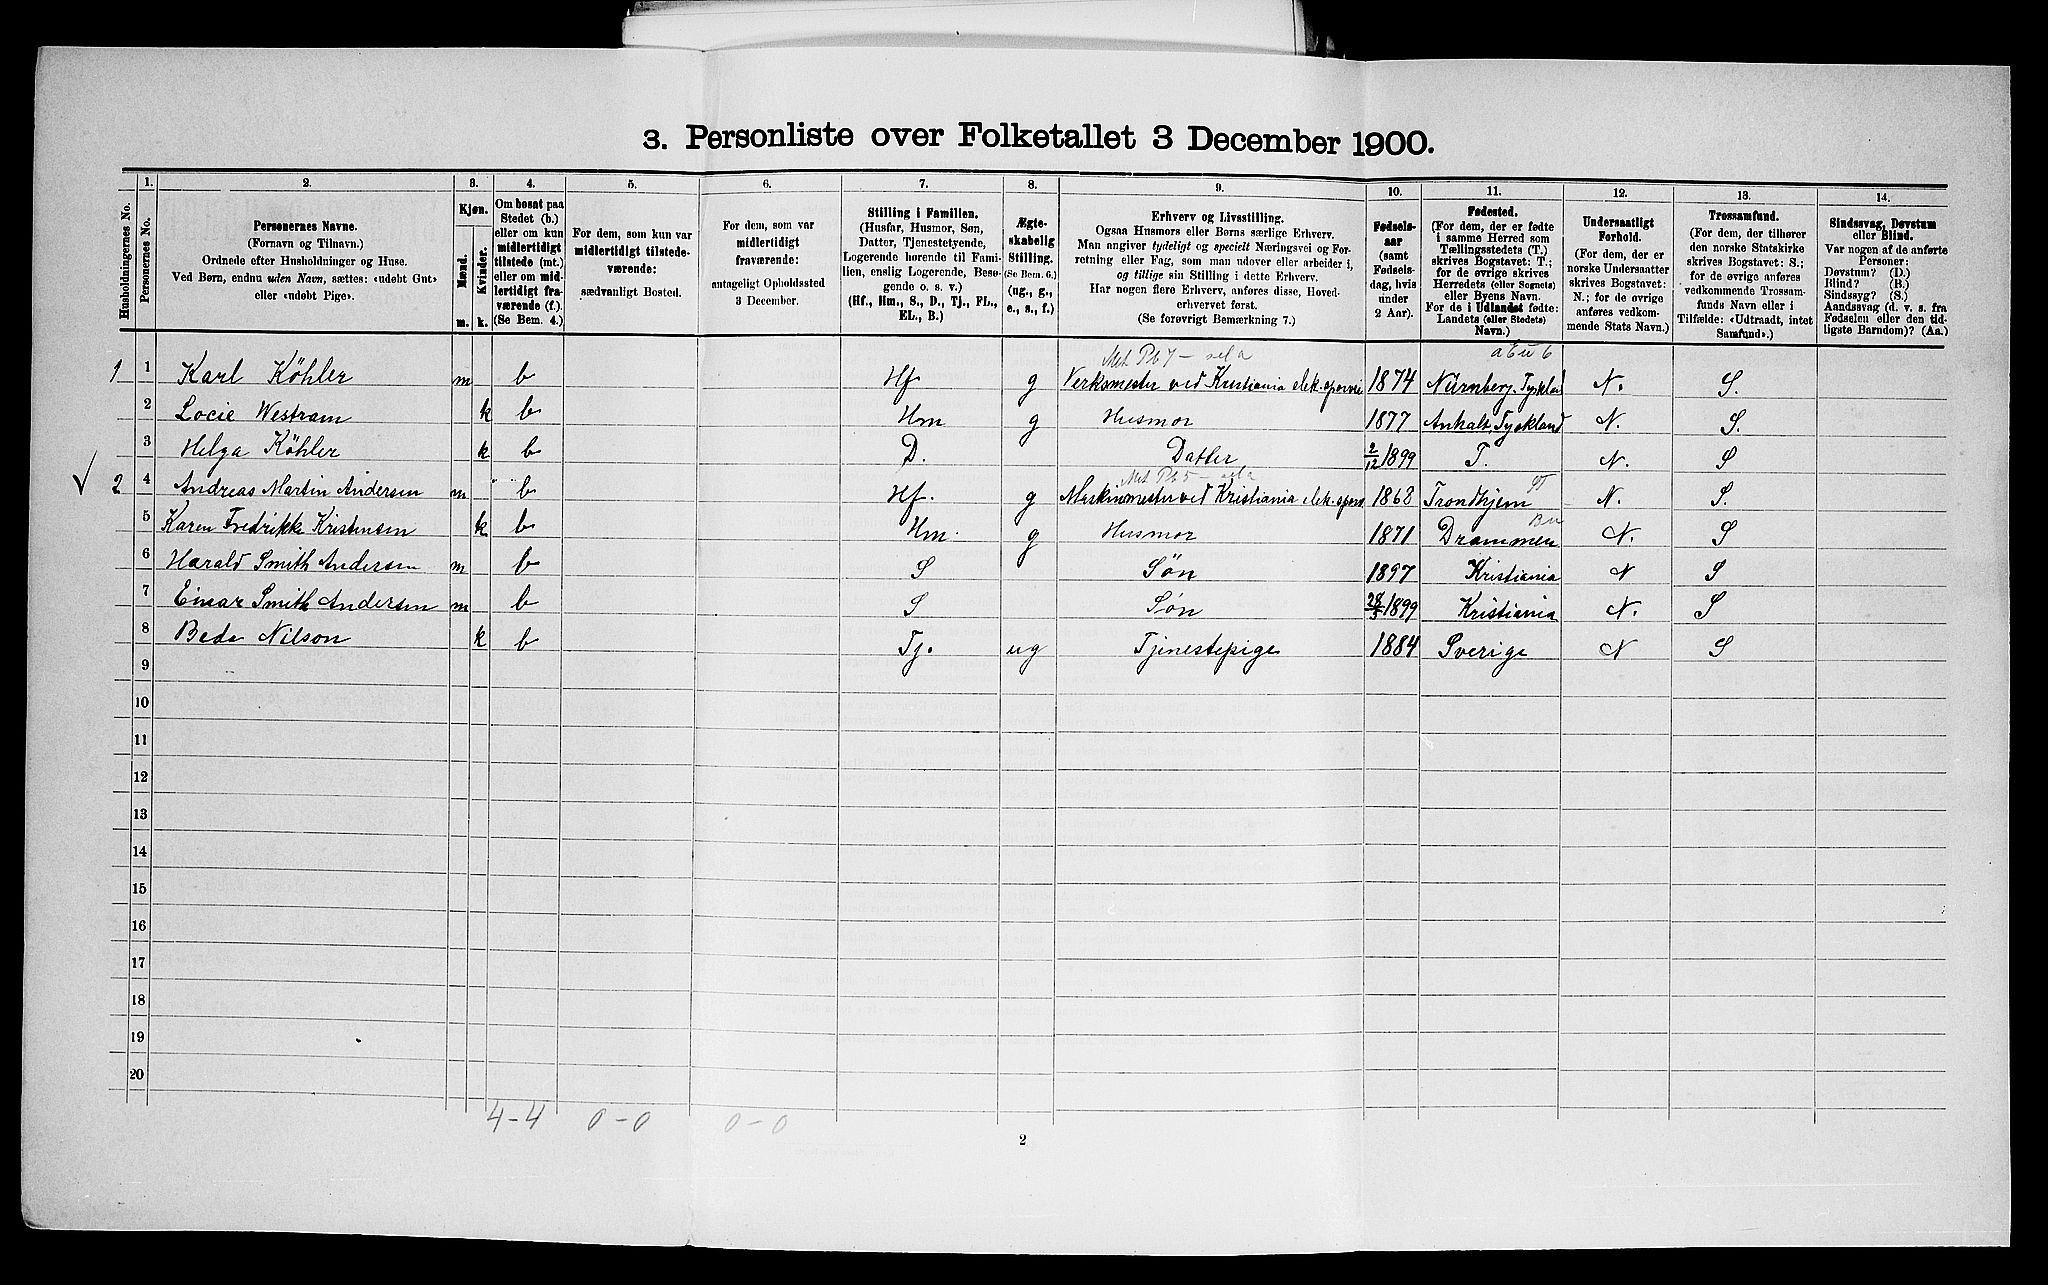 3. Personliste over Folketallet 3 December 1900.
Husholdningernes No.
1.
Personernes No.
2.
Personernes Navne.
(Fornavn og Tilnavn.)
Ordnede efter Husholdninger og Huse.
Ved Børn, endnu uden Navn, sættes: «udøbt Gut»
eller «udøbt Pige».
3.
Kjøn.
Mænd.
Kvinder.
m. k.
4.
Om bosat paa
Stedet (b.)
eller om kun
midlertidigt
tilstede (mt.)
eller om mid-
lertidigt fra-
værende (f.)
(Se Bem. 4.)
5.
For dem, som kun var
midlertidigt tilstede-
værende:
sædvanligt Bosted.
6.
For dem, som var
midlertidigt
fraværende:
antageligt Opholdssted
3 December.
7.
Stilling i Familien.
(Husfar, Husmor, Søn,
Datter, Tjenestetyende,
Logerende hørende til Fami-
lien, enslig Logerende, Besø-
gende o. s. v.)
(Hf., Hm., S., D., Tj., FL.,
EL., B.)
8.
Ægte-
skabelig
Stilling.
(Se Bem. 6.)
(ug., g.,
e., s., f.)
9.
Erhverv og Livsstilling.
Ogsaa Husmors eller Børns særlige Erhverv.
Man angiver tydeligt og specielt Næringsvei og For-
retning eller Fag, som man udover eller arbeider i,
og tillige sin Stilling i dette Erhverv.
Har nogen flere Erhverv, anføres disse, Hoved-
erhvervet først.
(Se forøvrigt Bemærkning 7.)
10.
Fødsels-
aar
(samt
Fødsels-
dag, hvis
under
2 Aar).
11.
Fødested.
(For dem, der er fødte
i samme Herred som
Tællingsstedets (T.)
skrives Bogstavet: T.;
for de øvrige skrives
Herredets (eller Sognets)
eller Byens Navn.
For de i Udlandet fødte:
Landets (eller Stedets)
Navn.)
12.
Undersaatligt
Forhold.
(For dem, der er
norske Undersaatter
skrives Bogstavet:
N.; for de øvrige
anføres vedkom-
mende Stats Navn.)
13.
Trossamfund.
(For dem, der tilhører
den norske Statskirke
skrives Bogstavet: S.;
for de øvrige anføres
vedkommende Trossam-
funds Navn eller i
Tilfælde: «Udtraadt, intet
Samfund».)
14.
Sindssvag, Døvstum
eller Blind.
Var nogen af de anførte
Personer:
Døvstum? (D.)
Blind? (B.)
Sindssyg? (S.)
Aandssvag (d. v. s. fra
Fødselen eller den tid-
ligste Barndom)? (Aa.)
1 1 Karl Köhler m b Hf g Verksmester ved Kristiania elek. sporvei 1874 Nürnberg. Tyskland N. S.
2 Locie Westram k b Hm g Husmor 1877 Anhalt, Tyskland N. S.
3 Helga Köhler k b D. Datter 2/12 1899 T. N. S
√ 2 4 Andreas Martin Andersen m b Hf. g Maskinmester ved Kristiania elek. sporv 1868 Trondhjem N. S.
5 Karen Fredrikke Kristensen k b Hm. g Husmor 1871 Drammen N. S
6 Harald Smith Andersen m b S Søn 1897 Kristiania N S
7 Einar Smith Andersen m b S Søn 28/3 1899 Kristiania N. S
8 Beda Nilson k b Tj. ug Tjenestepige 1884 Sverige N S
9
10
11
12
13
14
15
16
17
18
19
20
4-4 0-0 0-0
2